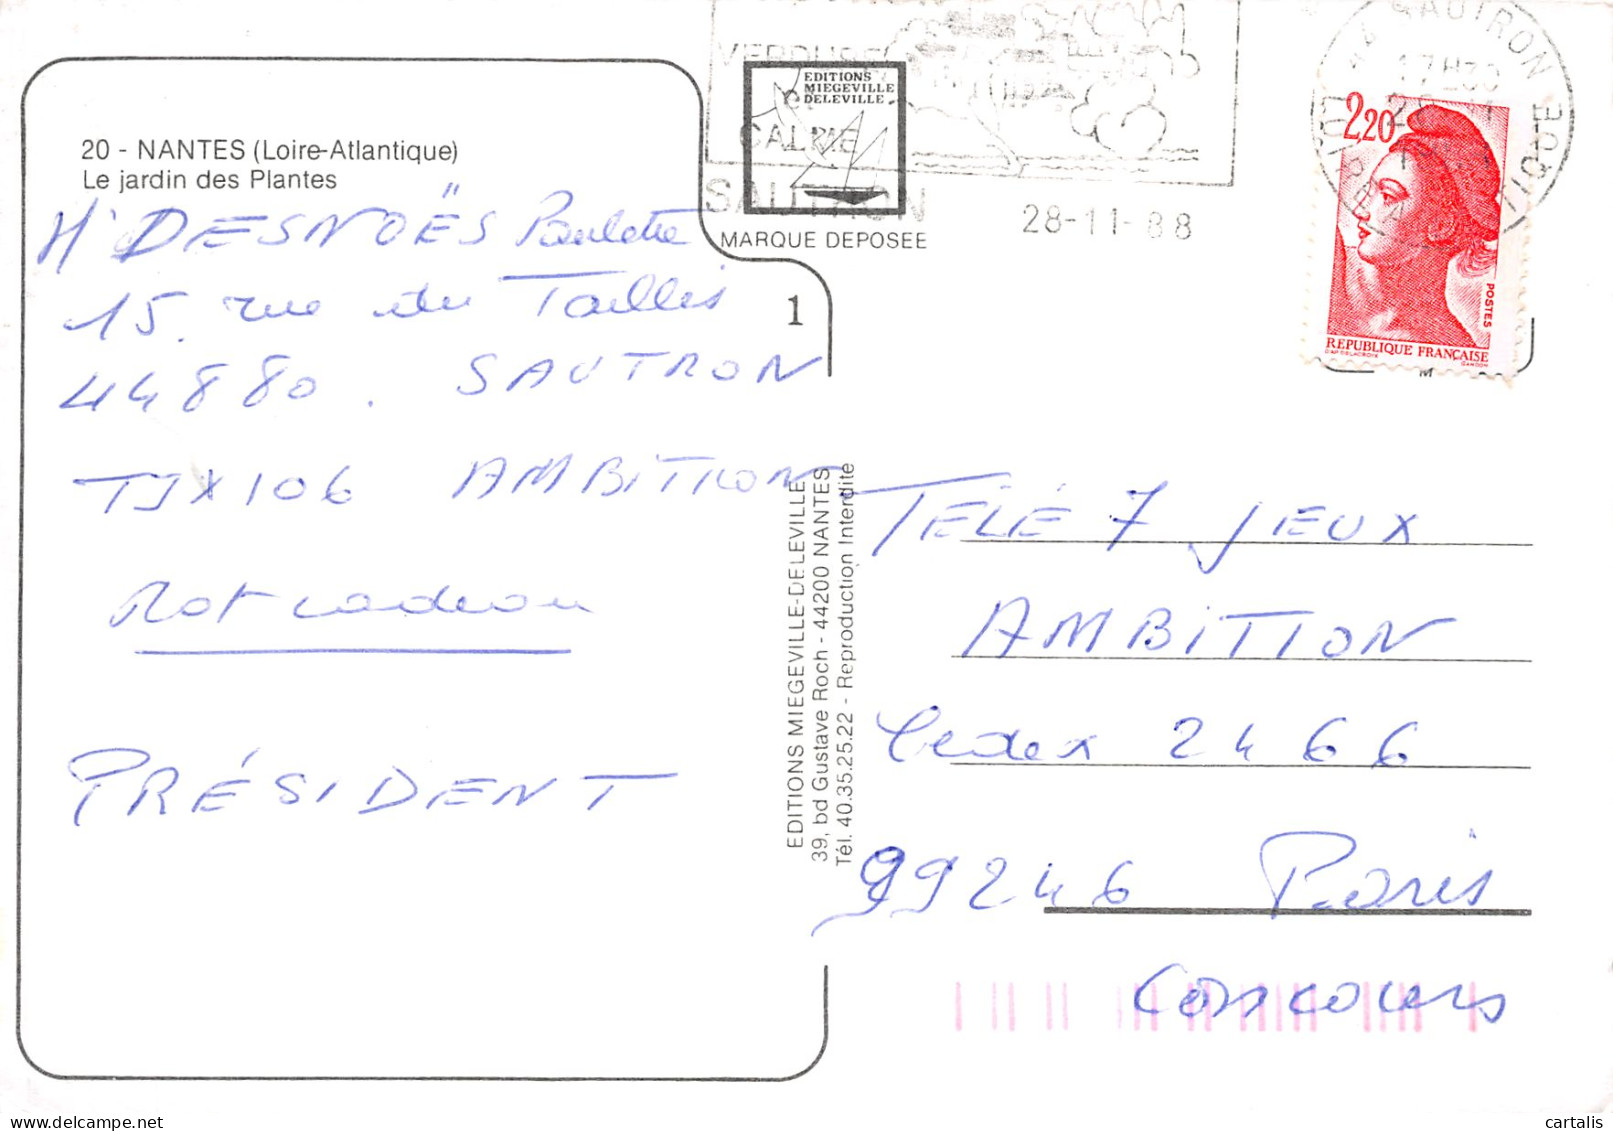 VERDURE
CALME
SAUTRON
28-11-88
SAUTRON
17H30
LOIRE ATL
EDITIONS
MIEGEVILLE
DELEVILLE
MARQUE DEPOSEE
2,20
POSTES
REPUBLIQUE FRANÇAISE
D'AP DELACROIX
GANDON
20 - NANTES (Loire-Atlantique)
Le jardin des Plantes
1
DESNOËS Paulette
15. rue du Taillis
44880. SAUTRON
TJX106 AMBITION
Mot cadeau
PRÉSIDENT
EDITIONS MIEGEVILLE-DELEVILLE
39, bd Gustave Roch - 44200 NANTES
Tél. 40.35.25.22 - Reproduction Interdite
TÉLÉ 7 JEUX
AMBITION
Cedex 2466
99246 Paris
Concours
cartalis
delcampe.net